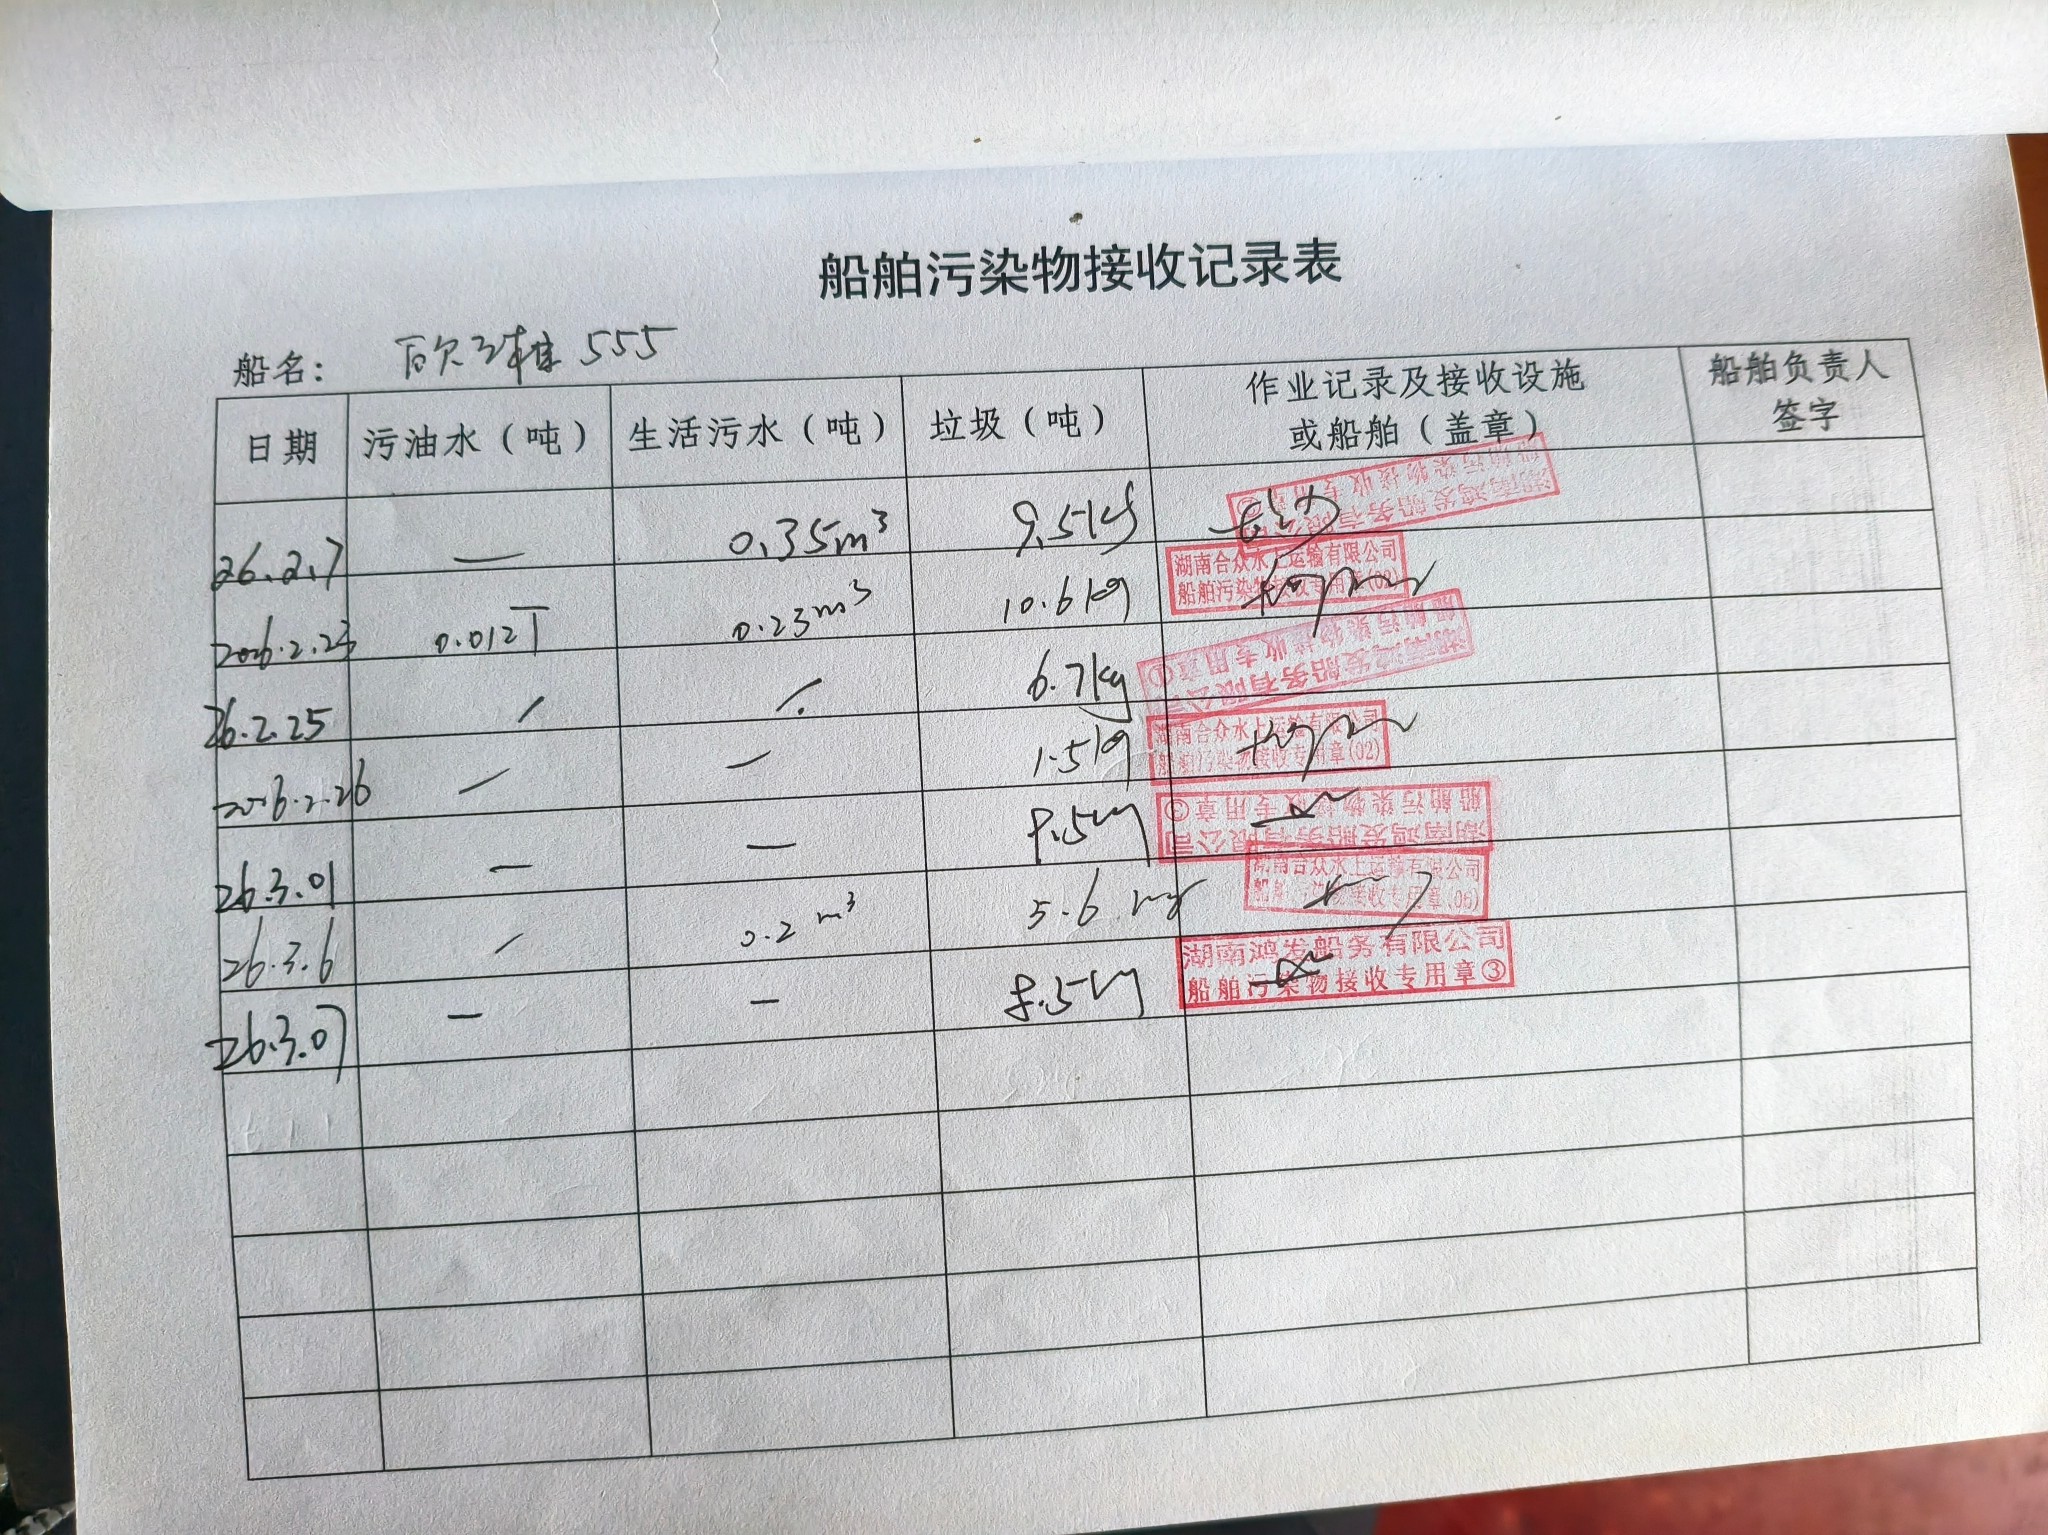 船舶污染物接收记录表
船名： 555
日期 污油水（吨） 生活污水（吨） 垃圾（吨） 作业记录及接收设施或船舶（盖章） 船舶负责人签字
26.2.7 — 0.35m³ 9.5kg 湖南鸿发船务有限公司 船舶污染物接收专用章
2026.2.23 0.012T 0.23m³ 10.6kg 湖南合众水上运输有限公司 船舶污染物接收专用章(02)
26.2.25 / / 6.7kg 湖南鸿发船务有限公司 船舶污染物接收专用章①
2026.2.26 / / 1.5kg 湖南合众水上运输有限公司 船舶污染物接收专用章(02)
26.3.01 — — 湖南鸿发船务有限公司 船舶污染物接收专用章③
26.3.6 / 0.2m³ 5.6 湖南合众水上运输有限公司 船舶污染物接收专用章(06)
26.3.07 — — 8.5 湖南鸿发船务有限公司 船舶污染物接收专用章③